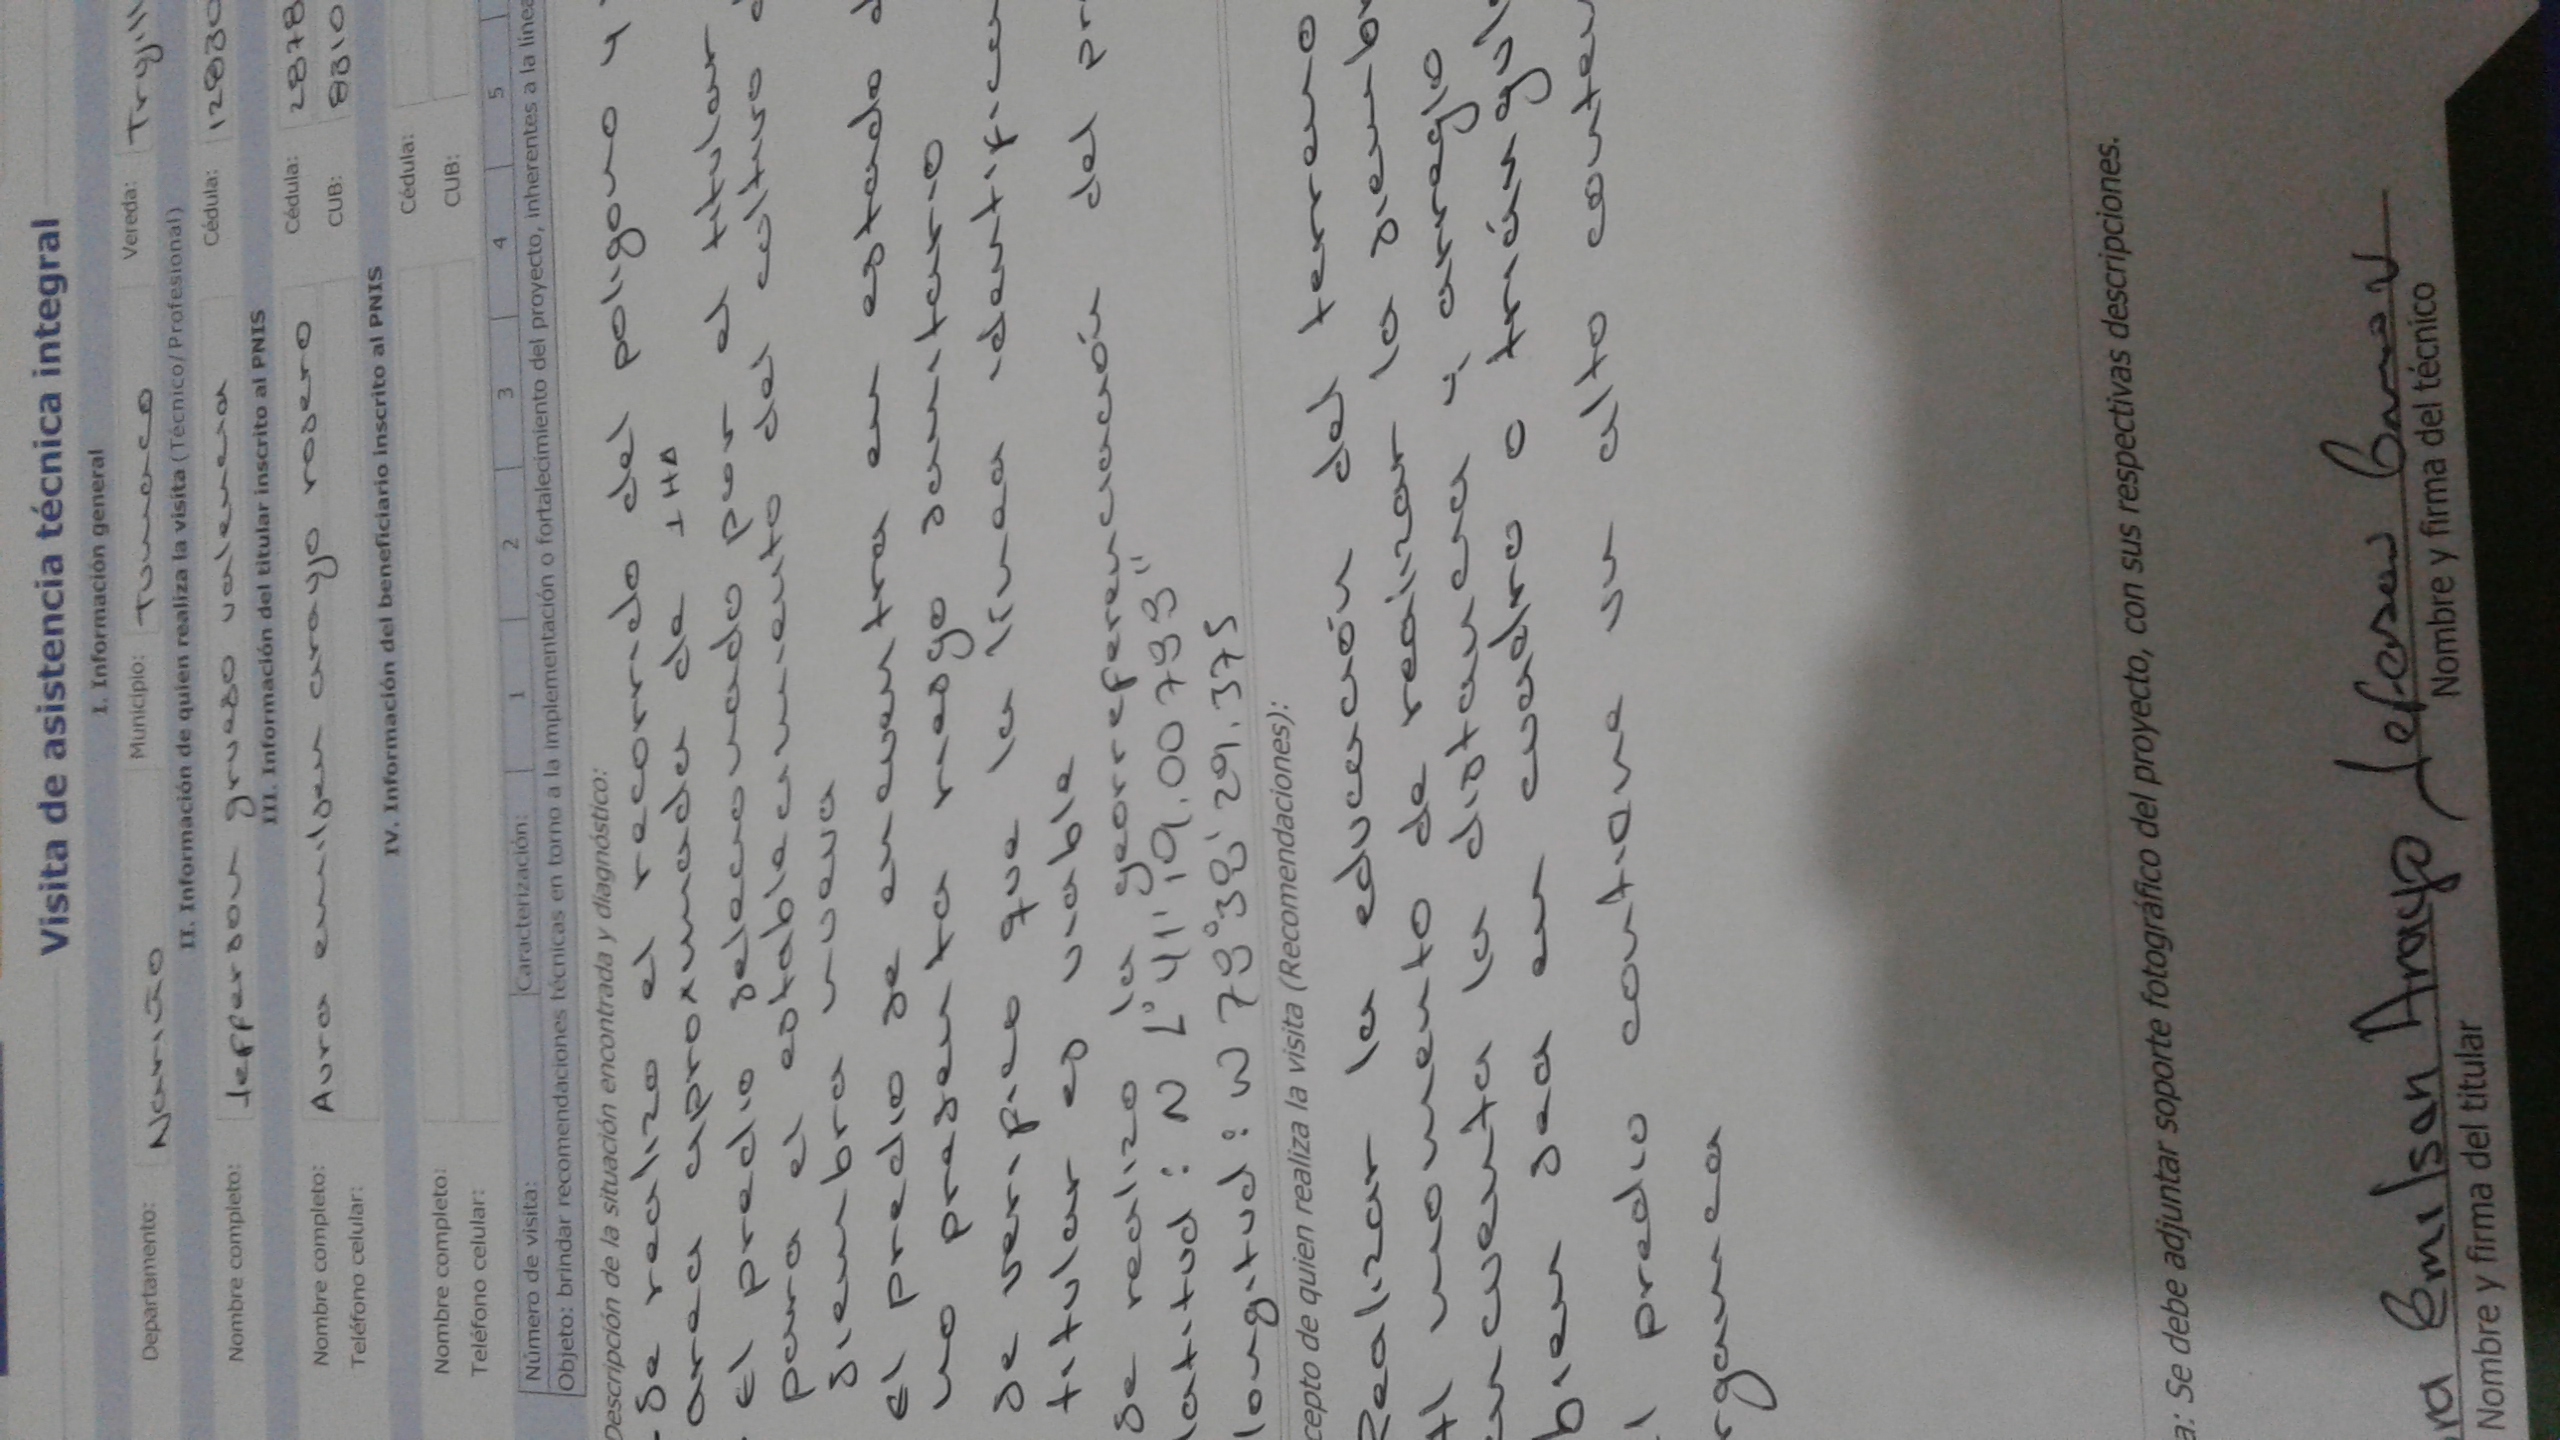 Visita de asistencia técnica integral
I. Información general
Departamento: Nariño Municipio: Tumaco Vereda:
II. Información de quien realiza la visita (Técnico/ Profesional)
Nombre completo: Jepperson grueso valencia Cédula: 12830
III. Información del titular inscrito al PNIS
Nombre completo: Aura emilsen arayo rosero Cédula: 2878
Teléfono celular: CUB: 8310
IV. Información del beneficiario inscrito al PNIS
Nombre completo: Cédula:
Teléfono celular: CUB:
Número de visita: Caracterización: 1 2 3 4 5
Objeto: brindar recomendaciones técnicas en torno a la implementación o fortalecimiento del proyecto, inherentes a la línea
Descripción de la situación encontrada y diagnóstico:
- Se realizo el recorrido del poligono y
area aproximada de 1 HA
- El predio selecionado por el titular
para el establecimiento del cultivo
siembra nueva
El predio se encuentra en estado
no presenta riesgo sanitario
se verifico que la línea identificen
titular es viable
se realizo la georreferenciación del pr
latitud: N 1° 41' 19.00793"
longitud: W 78° 38' 29.375
cepto de quien realiza la visita (Recomendaciones):
Realizar la educación del terreno
Al momento de realizar la siembr
en cuenta la distancia y arreglo
bien sea en cuadro o triángul
l predio contiene un alto conten
rganica
a: Se debe adjuntar soporte fotográfico del proyecto, con sus respectivas descripciones.
ra Emilsan Arayo Jefferson
Nombre y firma del titular Nombre y firma del técnico